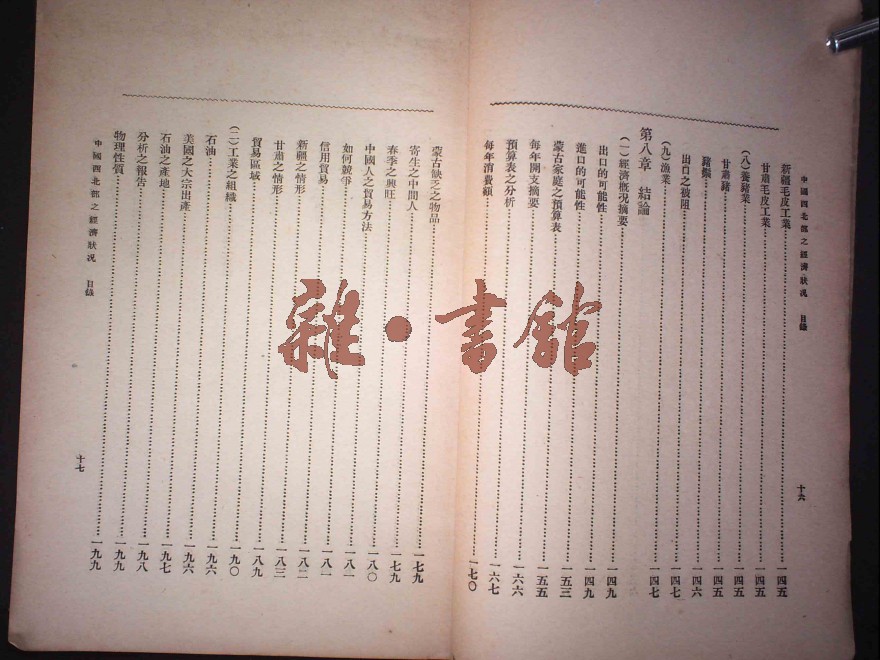 中國西北部之經濟狀況 目錄
十六
新疆毛皮工業 一四五
甘肅毛皮工業 一四五
（八）養豬業 一四五
甘肅豬 一四五
豬鬃 一四六
出口之被阻 一四七
（九）漁業 一四七
第八章 結論
（一）經濟概況摘要 一四九
出口的可能性 一四九
進口的可能性 一四九
蒙古家庭之預算表 一五三
每年開支摘要 一五五
預算表之分析 一六六
每年消費額 一六七
一七〇
蒙古缺乏之物品 一七九
寄生之中間人 一七九
春季之興旺 一七九
中國人之貿易方法 一八〇
如何競爭 一八一
信用貿易 一八一
新疆之情形 一八二
甘肅之情形 一八三
貿易區域 一八九
（二）工業之組織 一九〇
石油 一九六
美國之大宗出產 一九六
石油之產地 一九七
分析之報告 一九八
物理性質 一九九
一九九
中國西北部之經濟狀況 目錄
十七
雜·書館